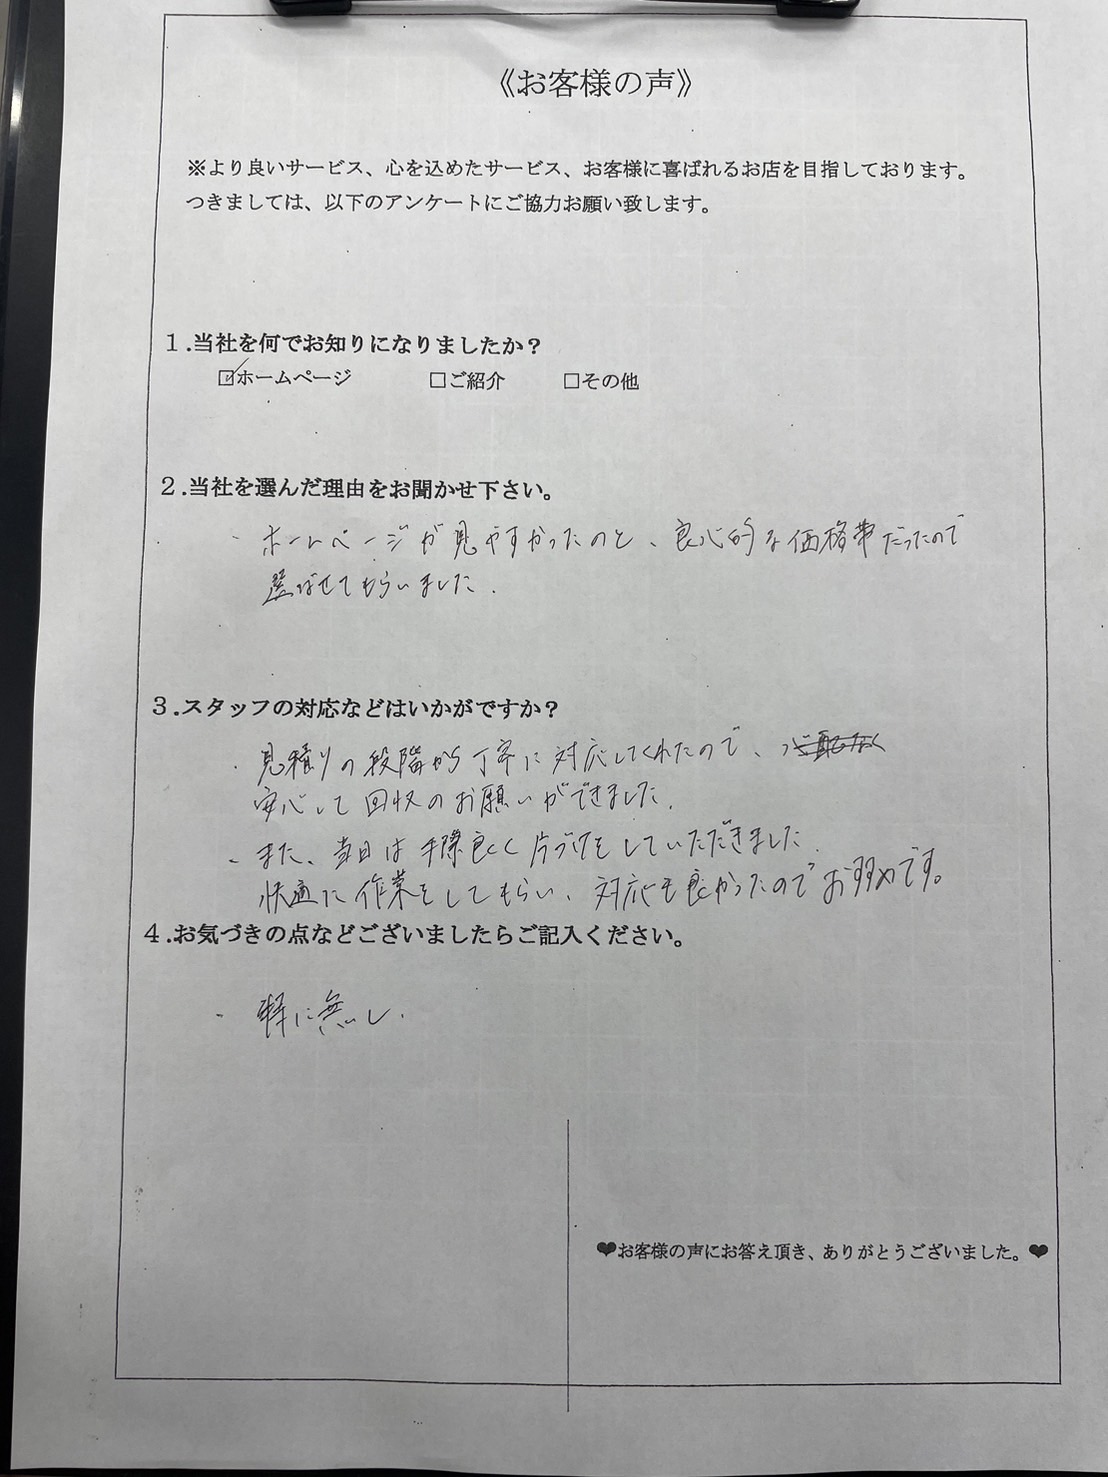 《お客様の声》
※より良いサービス、心を込めたサービス、お客様に喜ばれるお店を目指しております。
つきましては、以下のアンケートにご協力お願い致します。
１.当社を何でお知りになりましたか？
☑ホームページ □ご紹介 □その他
２.当社を選んだ理由をお聞かせ下さい。
・ホームページが見やすかったのと、良心的な価格帯だったので
選ばせてもらいました.
３.スタッフの対応などはいかがですか？
・見積りの段階から丁寧に対応してくれたので、
安心して回収のお願いができました.
・また、当日は手際良く片づけをしていただきました.
快適に作業をしてもらい、対応も良かったのでおすすめです。
４.お気づきの点などございましたらご記入ください。
・特に無し.
❤お客様の声にお答え頂き、ありがとうございました。❤